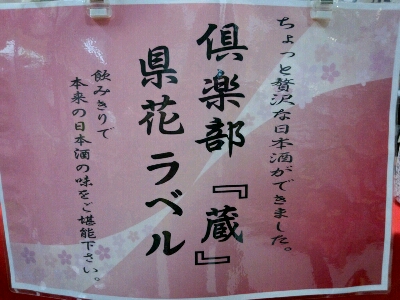 ちょっと贅沢な日本酒ができました。
倶楽部『蔵』
県花ラベル
飲みきりで
本来の日本酒の味をご堪能下さい。